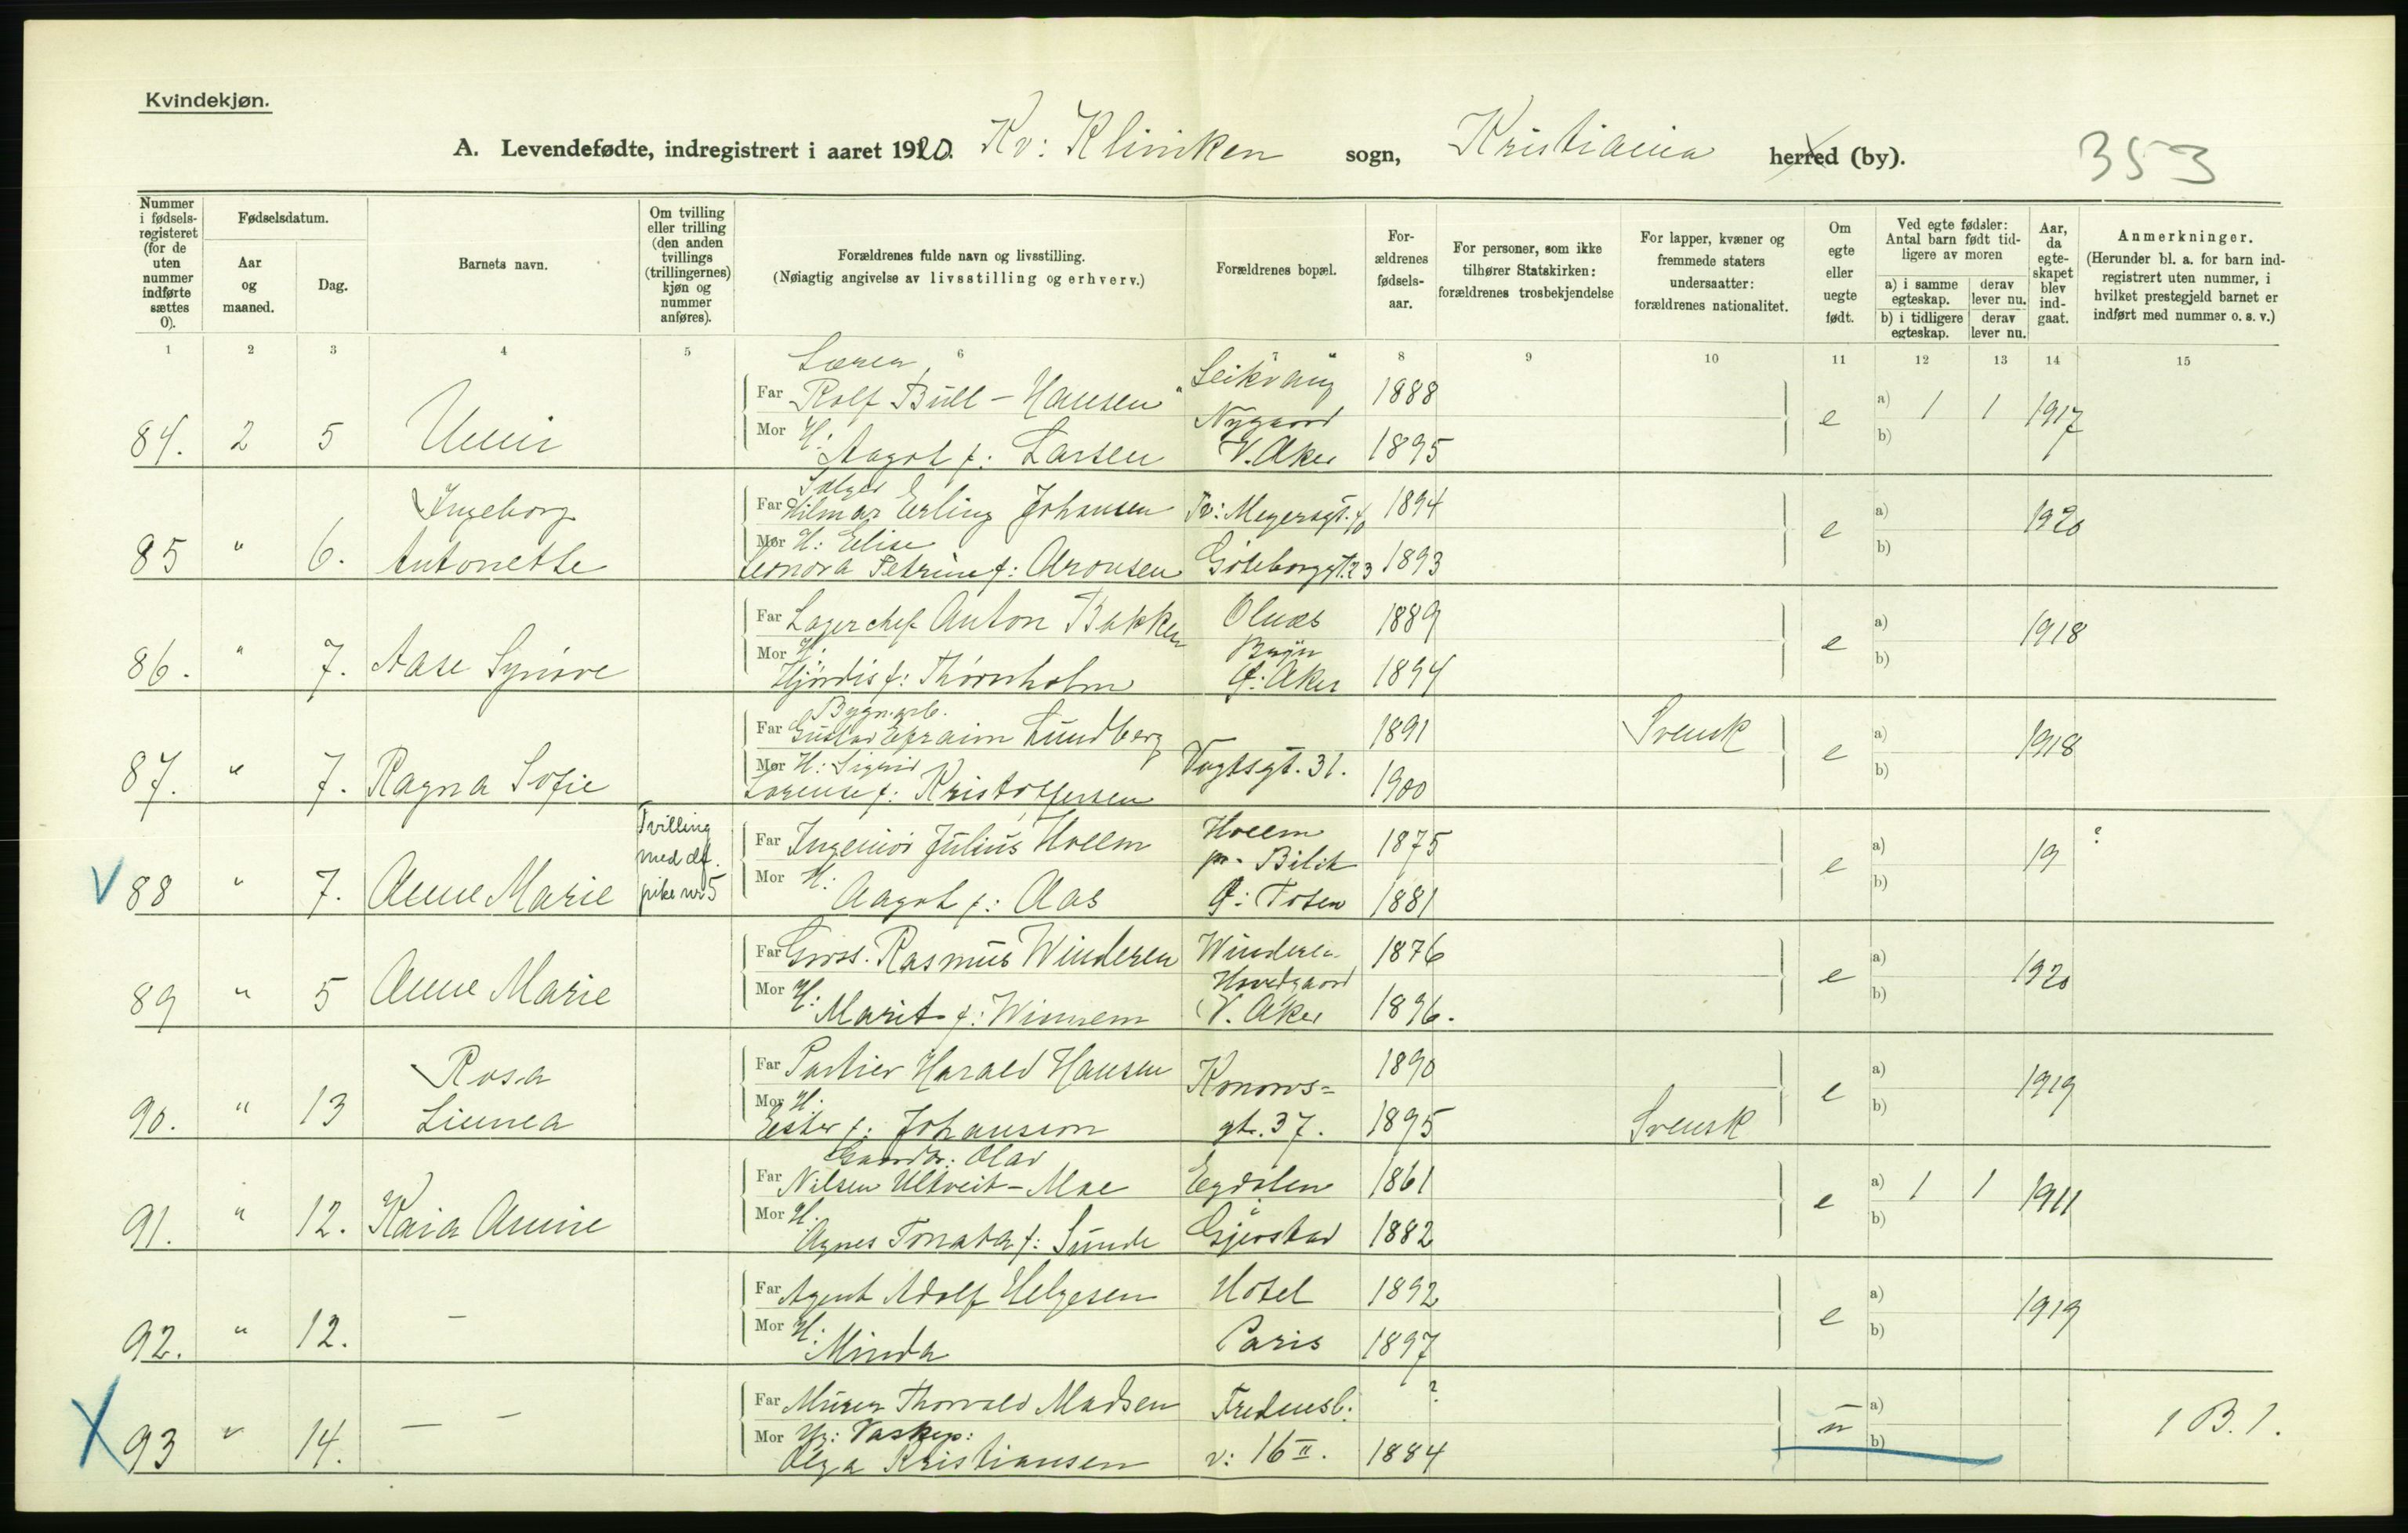 Kvindekjøn.
A. Levendefødte, indregistrert i aaret 1920. Kv: Kliniken sogn, Kristiania herred (by). 353
Nummer i fødsels-registeret (for de uten nummer indførte sættes 0).
Fødselsdatum.
Aar og maaned.
Dag.
Barnets navn.
Om tvilling eller trilling (den anden tvillings (trillingernes) kjøn og nummer anføres).
Forældrenes fulde navn og livsstilling.
(Nøiagtig angivelse av livsstilling og erhverv.)
Forældrenes bopæl.
For-ældrenes fødsels-aar.
For personer, som ikke tilhører Statskirken: forældrenes trosbekjendelse
For lapper, kvæner og fremmede staters undersaatter: forældrenes nationalitet.
Om egte eller uegte født.
Ved egte fødsler: Antal barn født tid-ligere av moren
a) i samme egteskap. derav lever nu.
b) i tidligere egteskap. derav lever nu.
Aar, da egte-skapet blev ind-gaat.
Anmerkninger.
(Herunder bl. a. for barn ind-registrert uten nummer, i hvilket prestegjeld barnet er indført med nummer o. s. v.)
1 2 3 4 5 6 8 9 10 11 12 13 14 15
Lærer
Far Rolf Bull-Hansen Leikvang 1888
84. 2 5 Unni e a) 1 1 1917
Mor H: Aagot f: Larsen Nygaard V. Aker 1895 b)
Sælger
Far Hilmar Erling Johansen Tv: Meyersgt. 1894
85 " 6. Ingeborg Antonette e a) 1920
Mor H: Elise
Leonora Petrine f: Aronsen Göteborggt. 23 1893 b)
Far Lagerchef Anton Bakken Olnæs 1889
86. " 7. Aase Synöve e a) 1918
Mor H: Hjördis f: Thörnholm Bryn Ø: Aker 1894 b)
Bygn.arb.
Far Gustav Efraim Lundberg 1891 Svensk
87. " 7. Ragna Sofie Vogtsgt. 31. e a) 1918
Mor H: Sigrid
Lorense f: Kristoffersen 1900 b)
Far Ingeniör Julius Hoelm Hoelm 1875
V 88 " 7. Anne Marie Tvilling med df. pike nr 5 e a) 19 ?
Mor H: Aagot f: Aas pr. Bilit Ø: Toten 1881 b)
Far Gross. Rasmus Winderen Winderen 1876
89 " 5 Anne Marie e a) 1920
Mor H: Marit f: Winnem Hovedgaard V. Aker 1896. b)
Far Portier Harald Hansen Konows= 1890
90. " 13 Rosa Linnea e a) 1919
Mor H. Ester f: Johansson gt. 37. 1895 Svensk b)
Gaardbr: Olav
Far Nilsen Ultveit-Moe Egdalen 1861
91. " 12. Kaia Annie e a) 1 1 1911
Mor H. Agnes Tonata f: Sunde Gjerstad 1882 b)
Far Agent Adolf Helgesen Hotel 1892
92. " 12. — e a) 1919
Mor H: Minda Paris 1897 b)
Far Murer Thorvald Madsen Fredensb: ?
X 93 " 14. — — u a) 1 B. 1.
Mor Ug: Vaskep:
Olga Kristiansen v: 16 II. 1884 b)